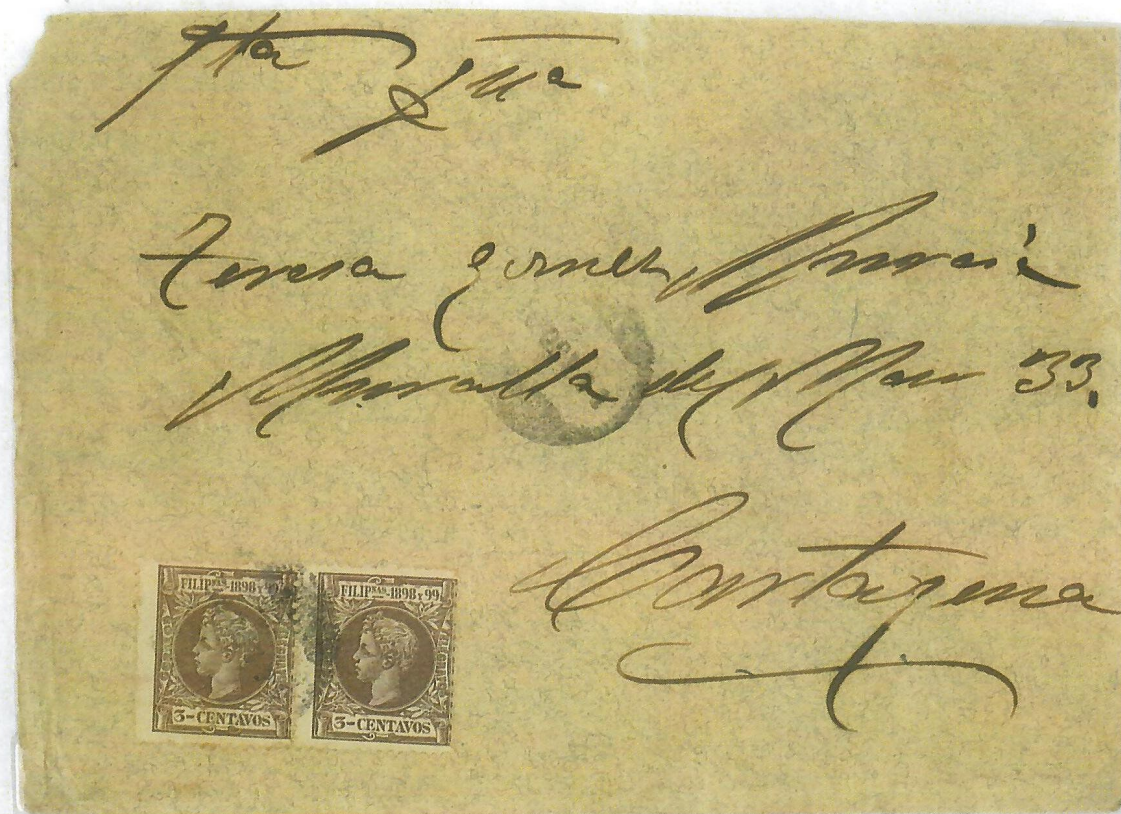 Teresa Gomez Murcia
Muralla del Mar 33.
Cartagena
FILIPNAS-1898 Y 99
3-CENTAVOS
FILIPNAS-1898 Y 99
3-CENTAVOS